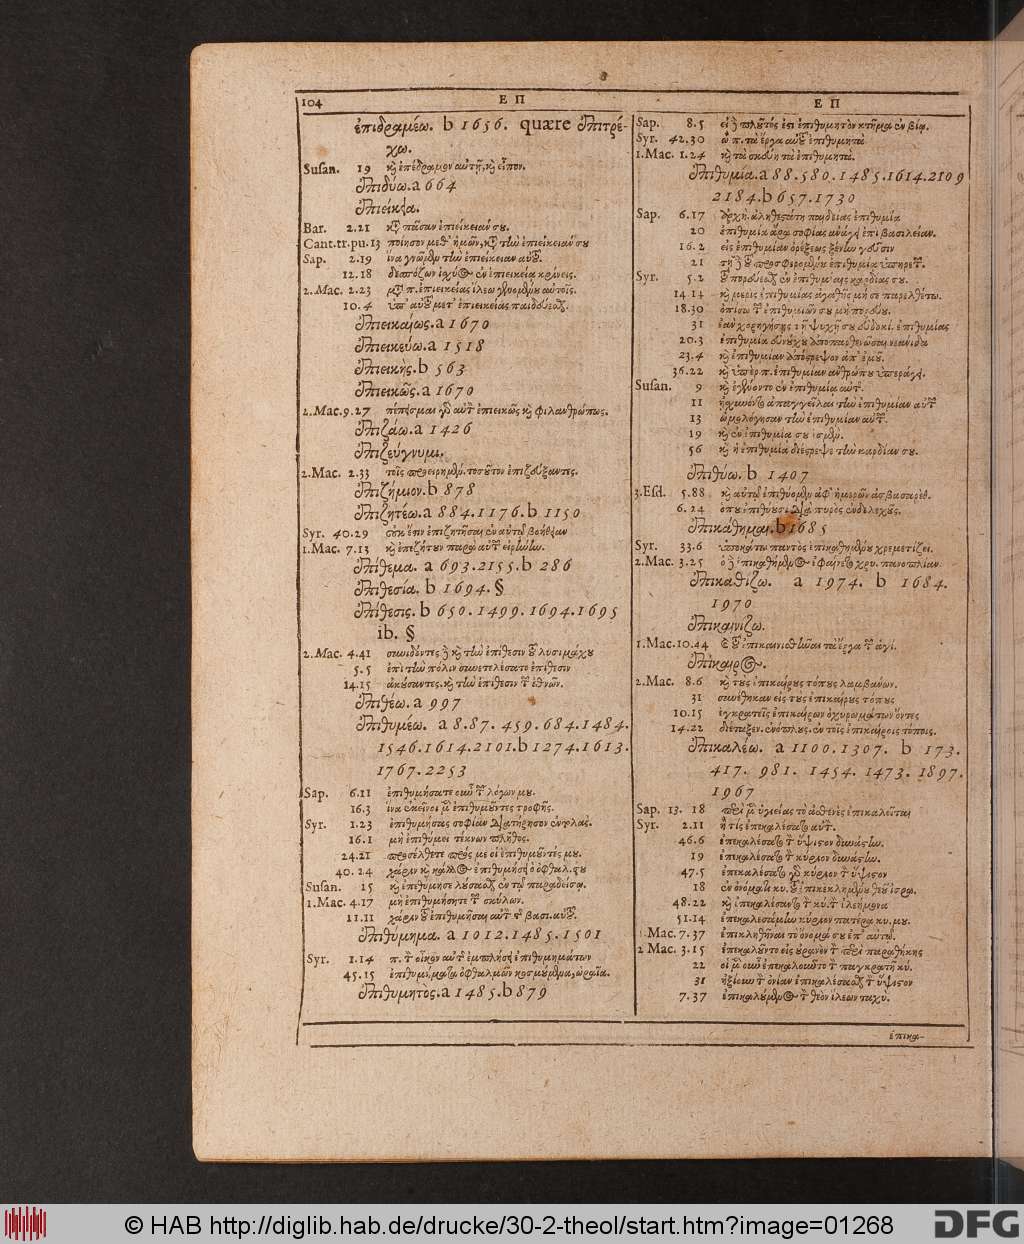 104 Ε Π Ε Π
ἐπιδραμέω. b 1656. quære ἐπιτρέ-
χω.
Susan. 19 καὶ ἐπέδραμον αὐτῇ, καὶ εἶπον.
ἐπιδύω. a 664
ἐπιείκεια.
Bar. 2.21 πᾶσαν ἐπιείκειάν σου.
Cant.tr.pu. 13 ποίησον μεθ' ἡμῶν, τὴν ἐπιείκειάν σου
Sap. 2.19 ἵνα γνῶμεν τὴν ἐπιείκειαν αὐτοῦ.
12.18 δεσπόζων ἰσχύος ἐν ἐπιεικείᾳ κρίνεις.
2.Mac. 2.23 ἐπιεικείας ἵλεω αὐτοῖς.
10.4 ὑπ' αὐτοῦ μετ' ἐπιεικείας παιδεύεσθαι.
ἐπιεικαίως. a 1670
ἐπιεικεύω. a 1518
ἐπιεικὴς. b 563
ἐπιεικῶς. a 1670
2.Mac. 9.27 πέπεισμαι γὰρ αὐτὸν ἐπιεικῶς καὶ φιλανθρώπως.
ἐπιζάω. a 1426
ἐπιζεύγνυμι.
2.Mac. 2.33 τοῖς προειρημένοις τοσοῦτον ἐπιζεύξαντες.
ἐπιζήμιον. b 878
ἐπιζητέω. a 884. 1176. b 1150
Syr. 40.29 οὐκ ἔστιν ἐπιζητῆσαι ἐν αὐτῷ βοήθειαν
1.Mac. 7.13 καὶ ἐπεζήτουν παρὰ αὐτῶν εἰρήνην.
ἐπίθεμα. a 693. 2155. b 286
ἐπιθεσία. b 1694. §
ἐπίθεσις. b 650. 1499. 1694. 1695
ib. §
2.Mac. 4.41 συνιδόντες δὲ καὶ τὴν ἐπίθεσιν τοῦ λυσιμάχου
5.5 ἐπὶ τὴν πόλιν συνετελέσατο ἐπίθεσιν
14.15 ἀκούσαντες. καὶ τὴν ἐπίθεσιν τῶν ἐθνῶν.
ἐπιθέω. a 997
ἐπιθυμέω. a 8. 87. 459. 684. 1484.
1546. 1614. 2101. b 1274. 1613.
1767. 2253
Sap. 6.11 ἐπιθυμήσατε οὖν τῶν λόγων μου.
16.3 ἵνα ἐκεῖνοι μὲν ἐπιθυμοῦντες τροφῆς.
Syr. 1.23 ἐπιθυμήσας σοφίαν διατήρησον ἐντολάς.
16.1 μὴ ἐπιθύμει τέκνων πλῆθος.
24.21 προσέλθετε πρός με οἱ ἐπιθυμοῦντές μου.
40.24 χάριν καὶ κάλλος ἐπιθυμήσει ὁ ὀφθαλ. σου
Susan. 15 καὶ ἐπεθύμησε λούσασθαι ἐν τῷ παραδείσῳ.
1.Mac. 4.17 μὴ ἐπιθυμήσητε τῶν σκύλων.
11.11 χάριν τοῦ ἐπιθυμῆσαι αὐτὸν τῆς βασι. αὐτοῦ.
ἐπιθύμημα. a 1012. 1485. 1501
Syr. 1.14 π. τὸν οἶκον αὐτῶν ἐμπλήσει ἐπιθυμημάτων
45.15 ἐπιθυμήματα ὀφθαλμῶν κοσμούμενα, ὡραῖα.
ἐπιθυμητὸς. a 1485. b 879
Sap. 8.5 εἰ δὲ πλοῦτός ἐστι ἐπιθυμητὸν κτῆμα ἐν βίῳ.
Syr. 42.30 ὡ π. τὰ ἔργα αὐτοῦ ἐπιθυμητὰ
1.Mac. 1.24 καὶ τὰ σκεύη τὰ ἐπιθυμητά.
ἐπιθυμία. a 88. 580. 1485. 1614. 2109
2184. b 657. 1730
Sap. 6.17 ἀρχὴ. ἀληθεστάτη παιδείας ἐπιθυμία
20 ἐπιθυμία ἄρα σοφίας ἀνάγει ἐπὶ βασιλείαν.
16.2 εἰς ἐπιθυμίαν ὀρέξεως ξένην γεῦσιν
21
Syr. 5.2 πορεύεσθαι ἐν ἐπιθυμίαις καρδίας σου.
14.14 καὶ μερὶς ἐπιθυμίας ἀγαθῆς μή σε παρελθέτω.
18.30 ὀπίσω τῶν ἐπιθυμιῶν σου μὴ πορεύου.
31 ἐὰν χορηγήσῃς τῇ ψυχῇ σου εὐδοκί. ἐπιθυμίας
20.3 ἐπιθυμία εὐνούχου ἀποπαρθενῶσαι νεάνιδα
23.4 καὶ ἐπιθυμίαν ἀπόστρεψον ἀπ' ἐμοῦ.
36.22 καὶ ὑπὲρ π. ἐπιθυμίαν ἀνθρώπου ὑπεράγει.
Susan. 9 καὶ ἐγένοντο ἐν ἐπιθυμίᾳ αὐτῆς.
11 ἠσχύνοντο ἀπαγγεῖλαι τὴν ἐπιθυμίαν αὐτῶν
13 ὡμολόγησαν τὴν ἐπιθυμίαν αὐτῶν.
19 καὶ ἐν ἐπιθυμίᾳ σου ἐσμέν.
56 καὶ ἡ ἐπιθυμία διέστρεψε τὴν καρδίαν σου.
ἐπιθύω. b 1407
3.Esd. 5.88 καὶ αὐτῷ ἐπιθύομεν ἀφ' ἡμερῶν ἀσβασαρὲθ.
6.24 ὅπου ἐπιθύουσι διὰ πυρὸς ἐνδελεχοῦς.
ἐπικάθημαι. b 1685
Syr. 33.6 ὑποκάτω παντὸς ἐπικαθημένου χρεμετίζει.
2.Mac. 3.25 ὁ δὲ ἐπικαθήμενος ἐφαίνετο χρυ. πανοπλίαν
ἐπικαθίζω. a 1974. b 1684.
1970
ἐπικαινίζω.
1.Mac. 10.44 τοῦ ἐπικαινισθῆναι τὰ ἔργα τῶν ἁγί.
ἐπίκαιρος.
2.Mac. 8.6 καὶ τοὺς ἐπικαίρους τόπους λαμβάνων.
31 συνέθηκαν εἰς τοὺς ἐπικαίρους τόπους
10.15 ἐγκρατεῖς ἐπικαίρων ὀχυρωμάτων ὄντες
14.22 διέταξεν. ἐνόπλους. ἐν τοῖς ἐπικαίροις τόποις.
ἐπικαλέω. a 1100. 1307. b 173.
417. 981. 1454. 1473. 1897.
1967
Sap. 13. 18 περὶ μὲν ὑγιείας τὸ ἀσθενὲς ἐπικαλεῖται
Syr. 2.11 ἢ τίς ἐπεκαλέσατο αὐτὸν.
46.6 ἐπεκαλέσατο τὸν ὕψιστον δυνάστην.
19 ἐπεκαλέσατο τὸν κύριον δυνάστην.
47.5 ἐπεκαλέσατο γὰρ κύριον τὸν ὕψιστον
18 ἐν ὀνόματι κυ. τοῦ ἐπικεκλημένου θεοῦ ἰσρα.
48.22 καὶ ἐπεκαλέσαντο τὸν κύ. τὸν ἐλεήμονα
51.14 ἐπεκαλεσάμην κύριον πατέρα κυ. μου.
Mac. 7.37 ἐπικληθῆναι τὸ ὄνομά σου ἐπ' αὐτῷ.
2 Mac. 3.15 ἐπεκαλοῦντο εἰς οὐρανὸν τὸν περὶ παραθήκης
22 οἱ μὲν οὖν ἐπεκαλοῦντο τὸν παγκρατῆ κύ.
31 ἠξίουν τὸν ὀνίαν ἐπικαλέσασθαι τὸν ὕψιστον
7.37 ἐπικαλούμενος τὸν θεὸν ἵλεων ταχὺ.
ἐπικα-
© HAB http://diglib.hab.de/drucke/30-2-theol/start.htm?image=01268
DFG